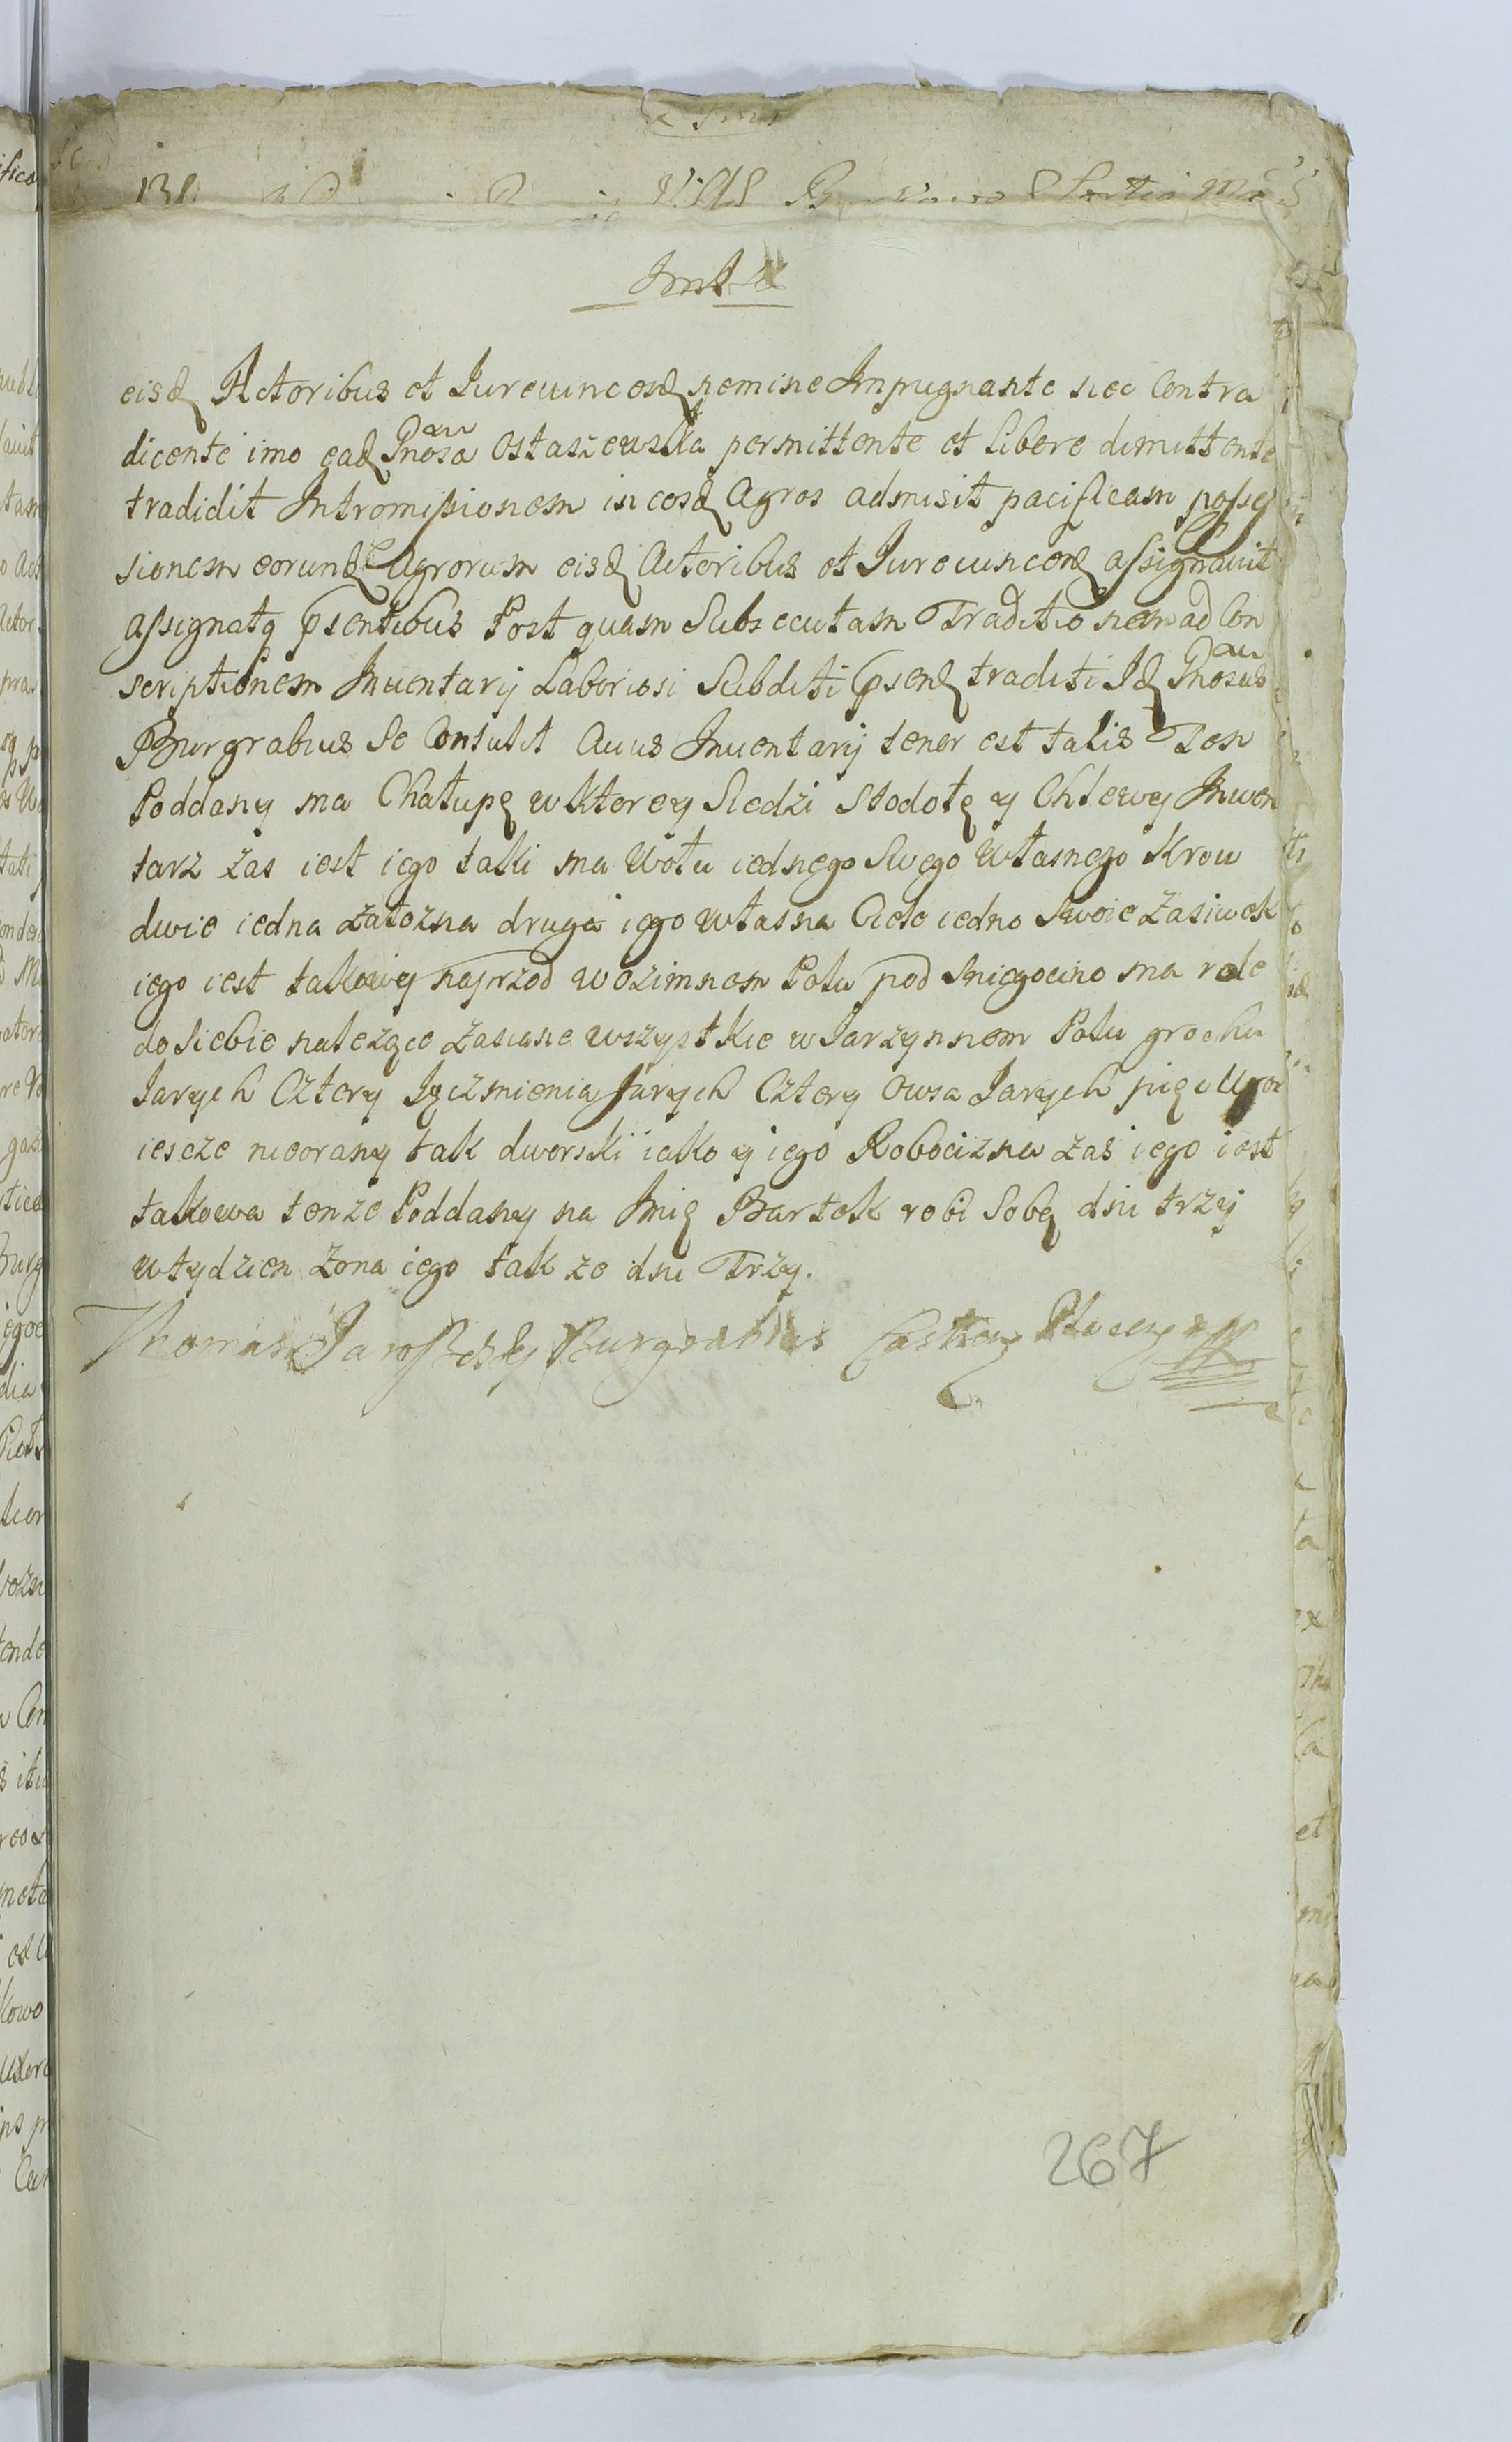 eisd Actoribus et Jurevincend nemine Impugnante nec Contra
dicente imo ead Gnosa Ostaszewska permittente et libere dimittente
tradidit Intromissionem in eosd Agros admisit pacificam posses
sionem eorund Agrorum eisd Actoribus et Jurevincend assignavit
assignatq psentibus Post quam Subsecutam Traditionem ad Con
scriptionem Inventarij Laboriosi Subditi psend traditi Id Gnosus
Burgrabius Se Contulit Cuius Inventarij tenor est talis Ten
Poddany ma Chałupę w ktorey Siedzi Stodołę y Chlewy Inwen
tarz zas iest iego taki ma Wołu iednego Swego własnego Krow
dwie iedna załozna druga iego własna Ciele iedno Swoie zasiwek
iego iest takowy naprzod w ozimnem Polu pod Sniegocino ma role
do Siebie nalezące zasiane wszystkie w Jarzynnem Polu grochu
Jarych Cztery Jęczmienia Jarych Cztery Owsa Jarych pięc Ugor
iescze nieorany tak dworski iako y iego Robocizna zas iego iest
takowa tenze Poddany na Imię Bartek robi Sobą dni trzy
w tydzien Zona iego tak ze dni Trzy.
Thomas Burgrabius Castren
267